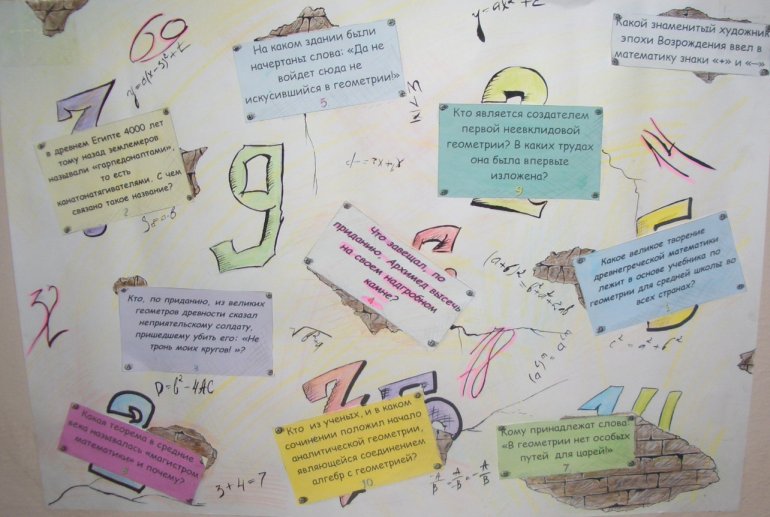 60
y=a(x-3)²+t
На каком здании были
начертаны слова: «Да не
войдет сюда не
искусившийся в геометрии!»
5
Какой знаменитый художник
эпохи Возрождения ввел в
математику знаки «+» и «—»
в древнем Египте 4000 лет
тому назад землемеров
называли «гарпедонаптами»,
то есть
канатонатягивателями. С чем
связано такое название?
2
9
Кто является создателем
первой неевклидовой
геометрии? В каких трудах
она была впервые
изложена?
9
Что завещал, по
приданию, Архимед высечь
на своем надгробном
камне?
4
Какое великое творение
древнегреческой математики
лежит в основе учебника по
геометрии для средней школы во
всех странах?
c²=a²+b²
32
Кто, по приданию, из великих
геометров древности сказал
неприятельскому солдату,
пришедшему убить его: «Не
тронь моих кругов! »?
3
18
D=b²-4AC
Какая теорема в средние
века называлась «магистром
математики» и почему?
3+4=7
Кто из ученых, и в каком
сочинении положил начало
аналитической геометрии,
являющейся соединением
алгебр с геометрией?
10
Кому принадлежат слова:
«В геометрии нет особых
путей для царей!»
7